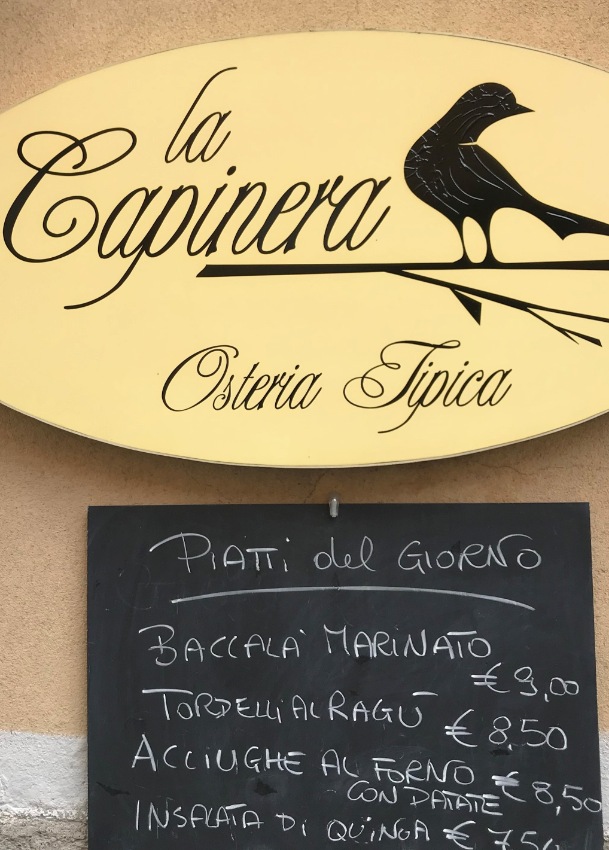 la
Capinera
Osteria Tipica
PIATTI del GIORNO
BACCALA' MARINATO
€ 9,00
TORDELLI AL RAGÙ € 8,50
ACCIUGHE AL FORNO
CON PATATE € 8,50
INSALATA DI QUINOA € 7,50